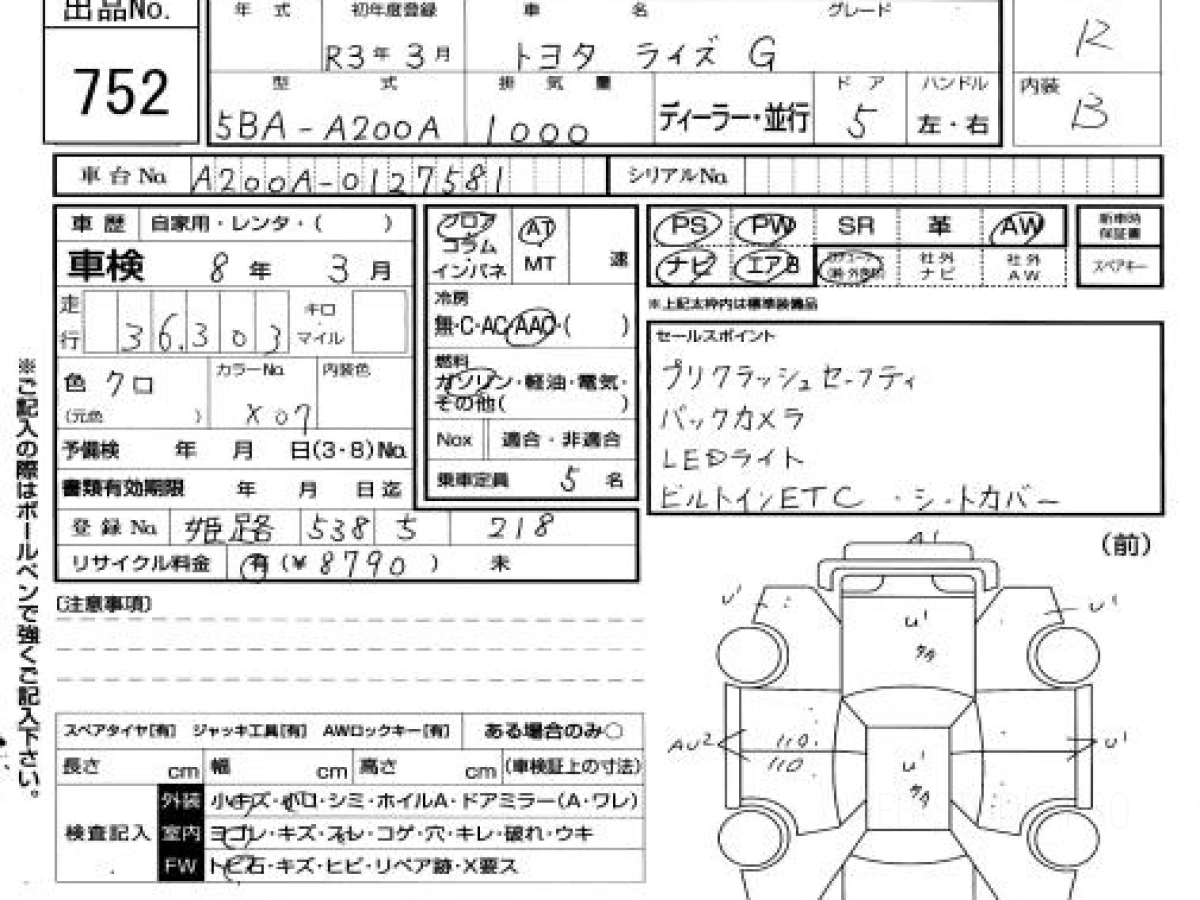 出品No. 年 式 初年度登録 車 名 グレード
752 R3年 3月 トヨタ ライズ G R
型 式 排 気 量 ディーラー・並行 ド ア ハンドル 内装
5BA-A200A 1000 5 左・右 B
車台No. A200A-0127581 シリアルNo.
車 歴 自家用・レンタ・( )
車検 8年 3月
走行 36,303 キロ マイル
色 クロ カラーNo. 内装色
(元色 ) X07
予備検 年 月 日(3・8)No.
書類有効期限 年 月 日迄
登録No. 姫路 538 5 218
リサイクル料金 有(¥8790) 未
フロア AT
コラム
インパネ MT 速
冷房
無・C・AC・AAC・( )
燃料
ガソリン・軽油・電気・
その他( )
Nox 適合・非適合
乗車定員 5 名
PS PW SR 革 AW 新車時保証書
ナビ エアB 社外ナビ 社外AW スペアキー
※上記太枠内は標準装備品
セールスポイント
プリクラッシュセーフティ
バックカメラ
LEDライト
ビルトインETC ・シートカバー
※ご記入の際はボールペンで強くご記入下さい。
〔注意事項〕
スペアタイヤ[有] ジャッキ工具[有] AWロックキー[有] ある場合のみ○
長さ cm 幅 cm 高さ cm (車検証上の寸法)
検査記入
外装 小キズ・小凹・シミ・ホイルA・ドアミラー(A・ワレ)
室内 ヨゴレ・キズ・スレ・コゲ・穴・キレ・破れ・ウキ
FW トビ石・キズ・ヒビ・リペア跡・X要ス
(前)
A1
U1 U1
U1
AU2 U1
U1